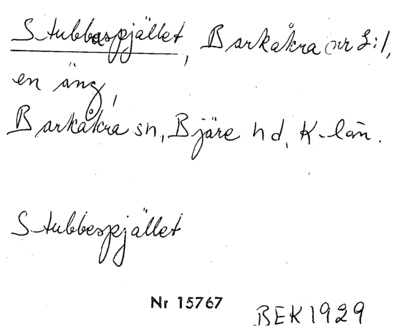 Stubbaspjället, Barkåkra nr 2:1,
en äng,
Barkåkra sn, Bjäre hd, K-län.
Stubbespjället
Nr 15767
BEK 1929